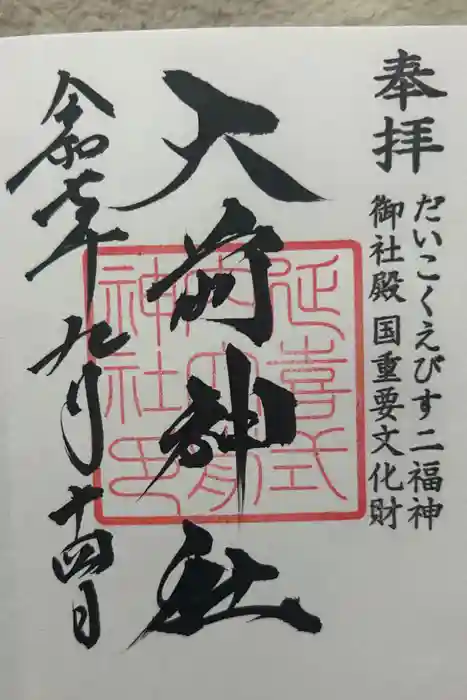 奉拝
だいこくえびす二福神
御社殿国重要文化財
大前神社
延喜式
内大前
神社印
令和七年九月十四日